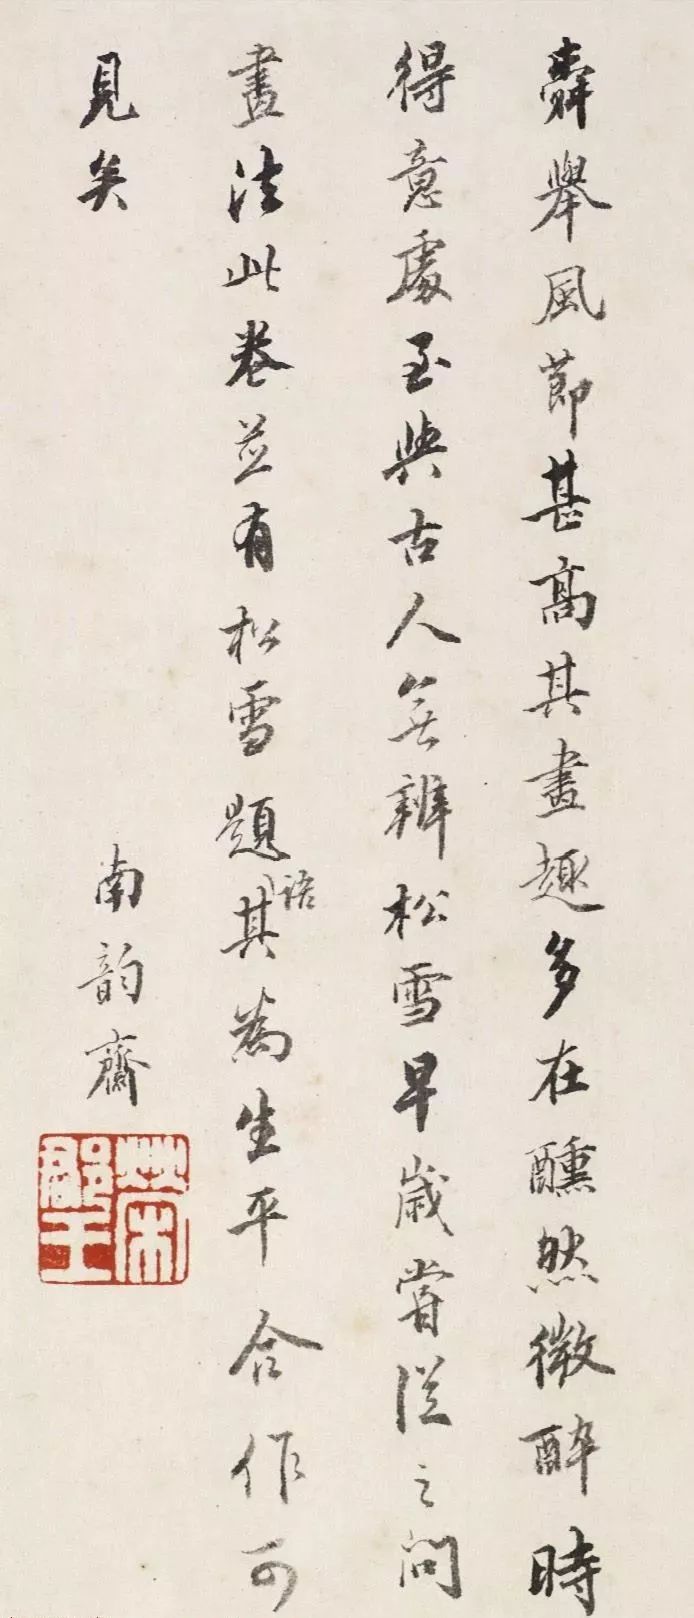 舜舉風節甚高其畫趣多在醺然微醉時
得意處至與古人無辨松雪早歲嘗從之問
畫法此卷並有松雪題語其為生平合作可
見矣
南韵齋
榮郡王